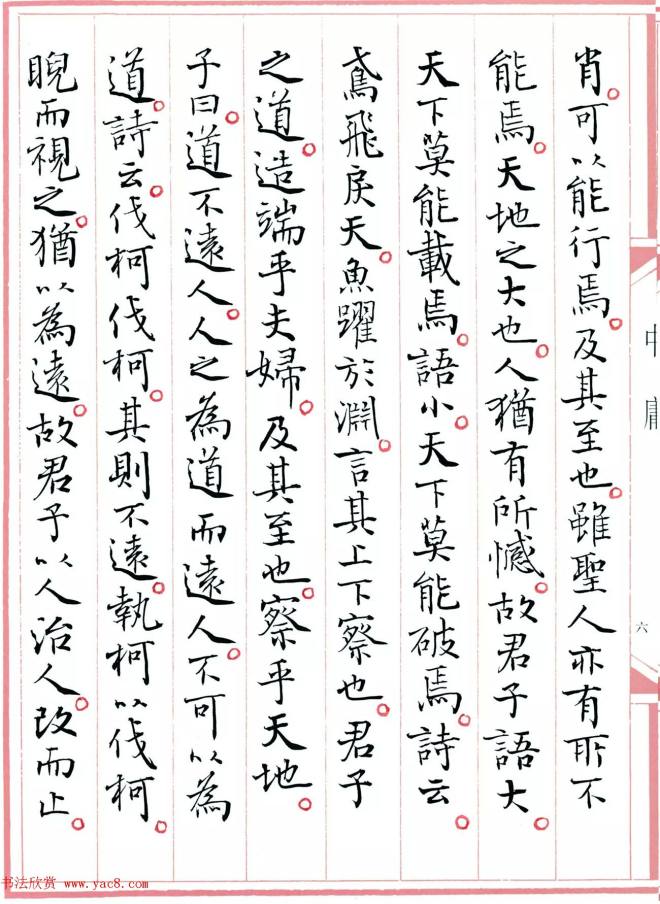 肖。可以能行焉。及其至也。雖聖人亦有所不
能焉。天地之大也。人猶有所憾。故君子語大。
天下莫能載焉。語小。天下莫能破焉。詩云。
鳶飛戾天。魚躍於淵。言其上下察也。君子
之道。造端乎夫婦。及其至也。察乎天地。
子曰。道不遠人。人之為道而遠人。不可以為
道。詩云。伐柯伐柯。其則不遠。執柯以伐柯。
睨而視之。猶以為遠。故君子以人治人。改而止。
中庸
六
书法欣赏 www.yac8.com